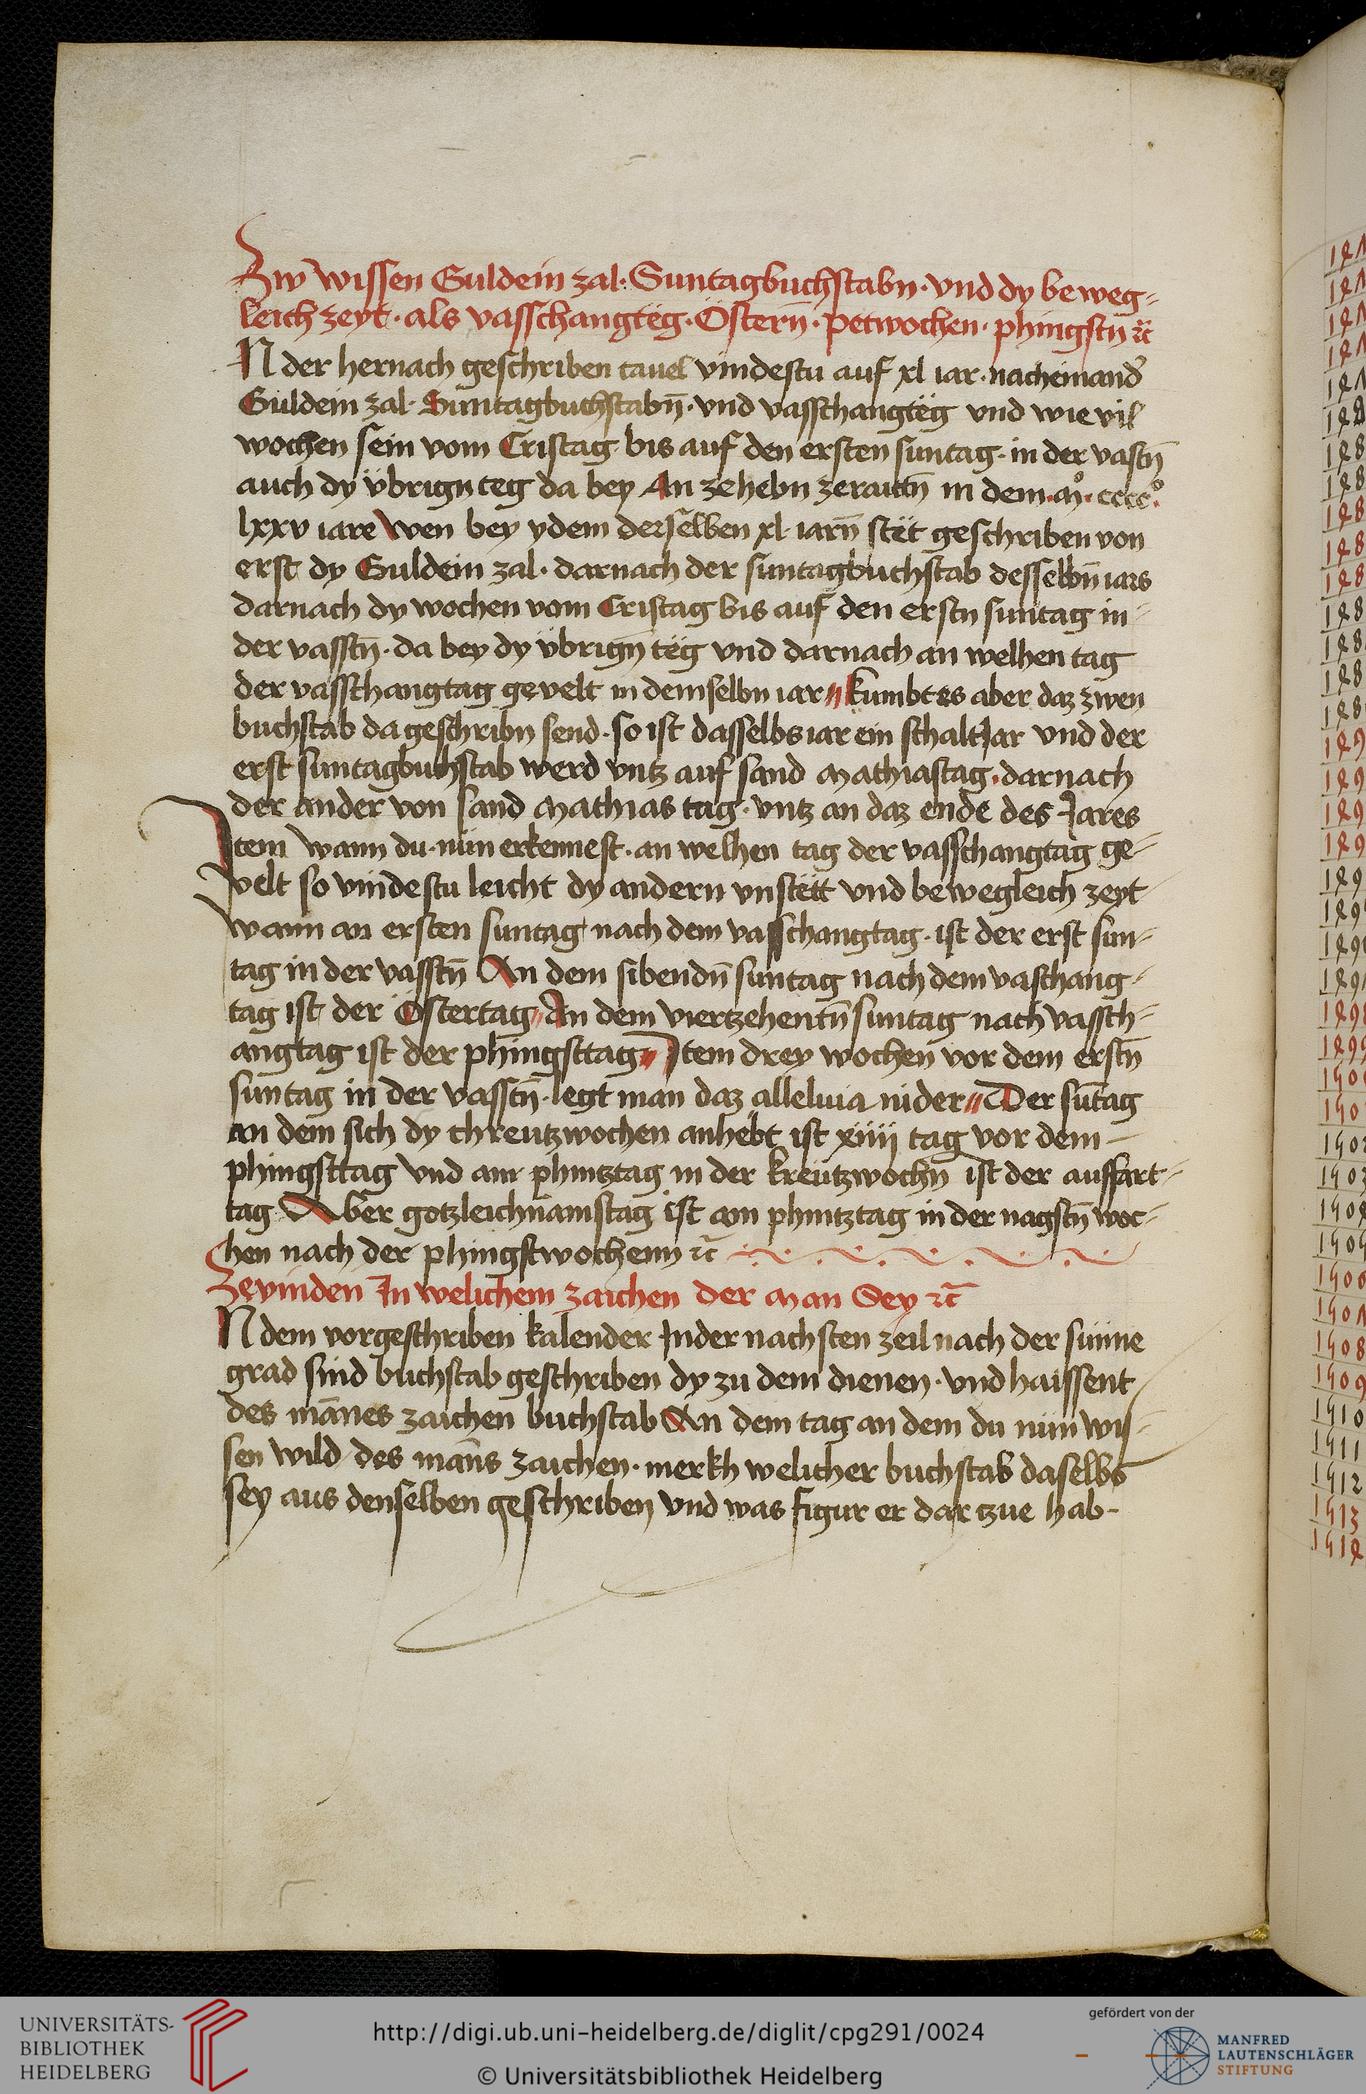 Zw wissen Guldein zal · Suntagbuchstabn · vnd dy beweg-
leich zeyt · als vasschangteg · Östern̄ · petwochen · phingstn ⁊c̄
N der hernach geschriben tauel vindestu auf xl iar · nacheinand̕
Guldein zal · Suntagbuchstabn̄ · vnd vasschangtëg vnd wie vil
wochen sein vom Cristag bis auf den ersten suntag · in der vastn̄
auch dy übrign teg da bey An zehebn zeraittn̄ in dem · mͦ · ccccͦ ·
lxxv iare Wen bey ydem derselben xl iarn̄ stët geschriben von
erst dy Guldein zal · darnach der suntagbuchstab desselbn̄ iars
darnach dy wochen vom Cristag bis auf den erstn suntag in-
der vasstn̄ · da bey dy übrign̄ tëg vnd darnach an welhen tag
der vasschangtag gevelt in demselbn iar kumbt es aber daz zwen
buchstab da geschribn send · so ist dasselbs iar ein schaltJar vnd der
erst suntagbuchstab werd vntz auf sand Mathiastag · darnach
der ander von sand Mathias tag · vntz an daz ende des Jares
Item wann du · nün erkennest · an welhen tag der vasschangtag ge-
velt so vindestu leicht dy andern vnstëtt vnd bewegleich zeyt-
wann an ersten suntag nach dem vasschangtag · ist der erst sun-
tag in der vasstn̄ An dem sibendn̄ suntag nach dem vaschang-
tag ist der Östertag An dem viertzehentn̄ suntag nach vassch-
angtag ist der phingsttag Item drey wochen vor dem erstn̄
suntag in der vasstn̄ · legt man daz alleluia nider Der sūtag
an dem sich dy chreutzwochen anhebt ist xiiij tag vor dem-
phingsttag vnd am phintztag in der kreutzwochn̄ ist der auffart-
tag Aber gotzleichnamstag ist am phintztag in der nagstn̄ woc-
hen nach der phingstwochenn ⁊c̄
Zevinden In welichem zaichen der Man Sey ⁊c̄
N dem vorgeschriben kalender In der nachsten zeil nach der sünne
grad sind buchstab geschriben dy zu dem dienen · vnd haissent
des mānes zaichen buchstab An dem tag an dem du nün wis-
sen wild des māns zaichen · merkh welicher buchstab daselbs
sey aus denselben geschriben vnd was figur er dar tzue hab-
UNIVERSITÄTS-
BIBLIOTHEK
HEIDELBERG
http://digi.ub.uni-heidelberg.de/diglit/cpg291/0024
© Universitätsbibliothek Heidelberg
gefördert von der
MANFRED
LAUTENSCHLÄGER
STIFTUNG